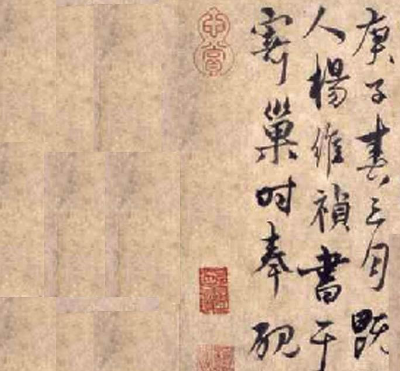 庚子春三月既
人楊維禎書于
巢时奉硯